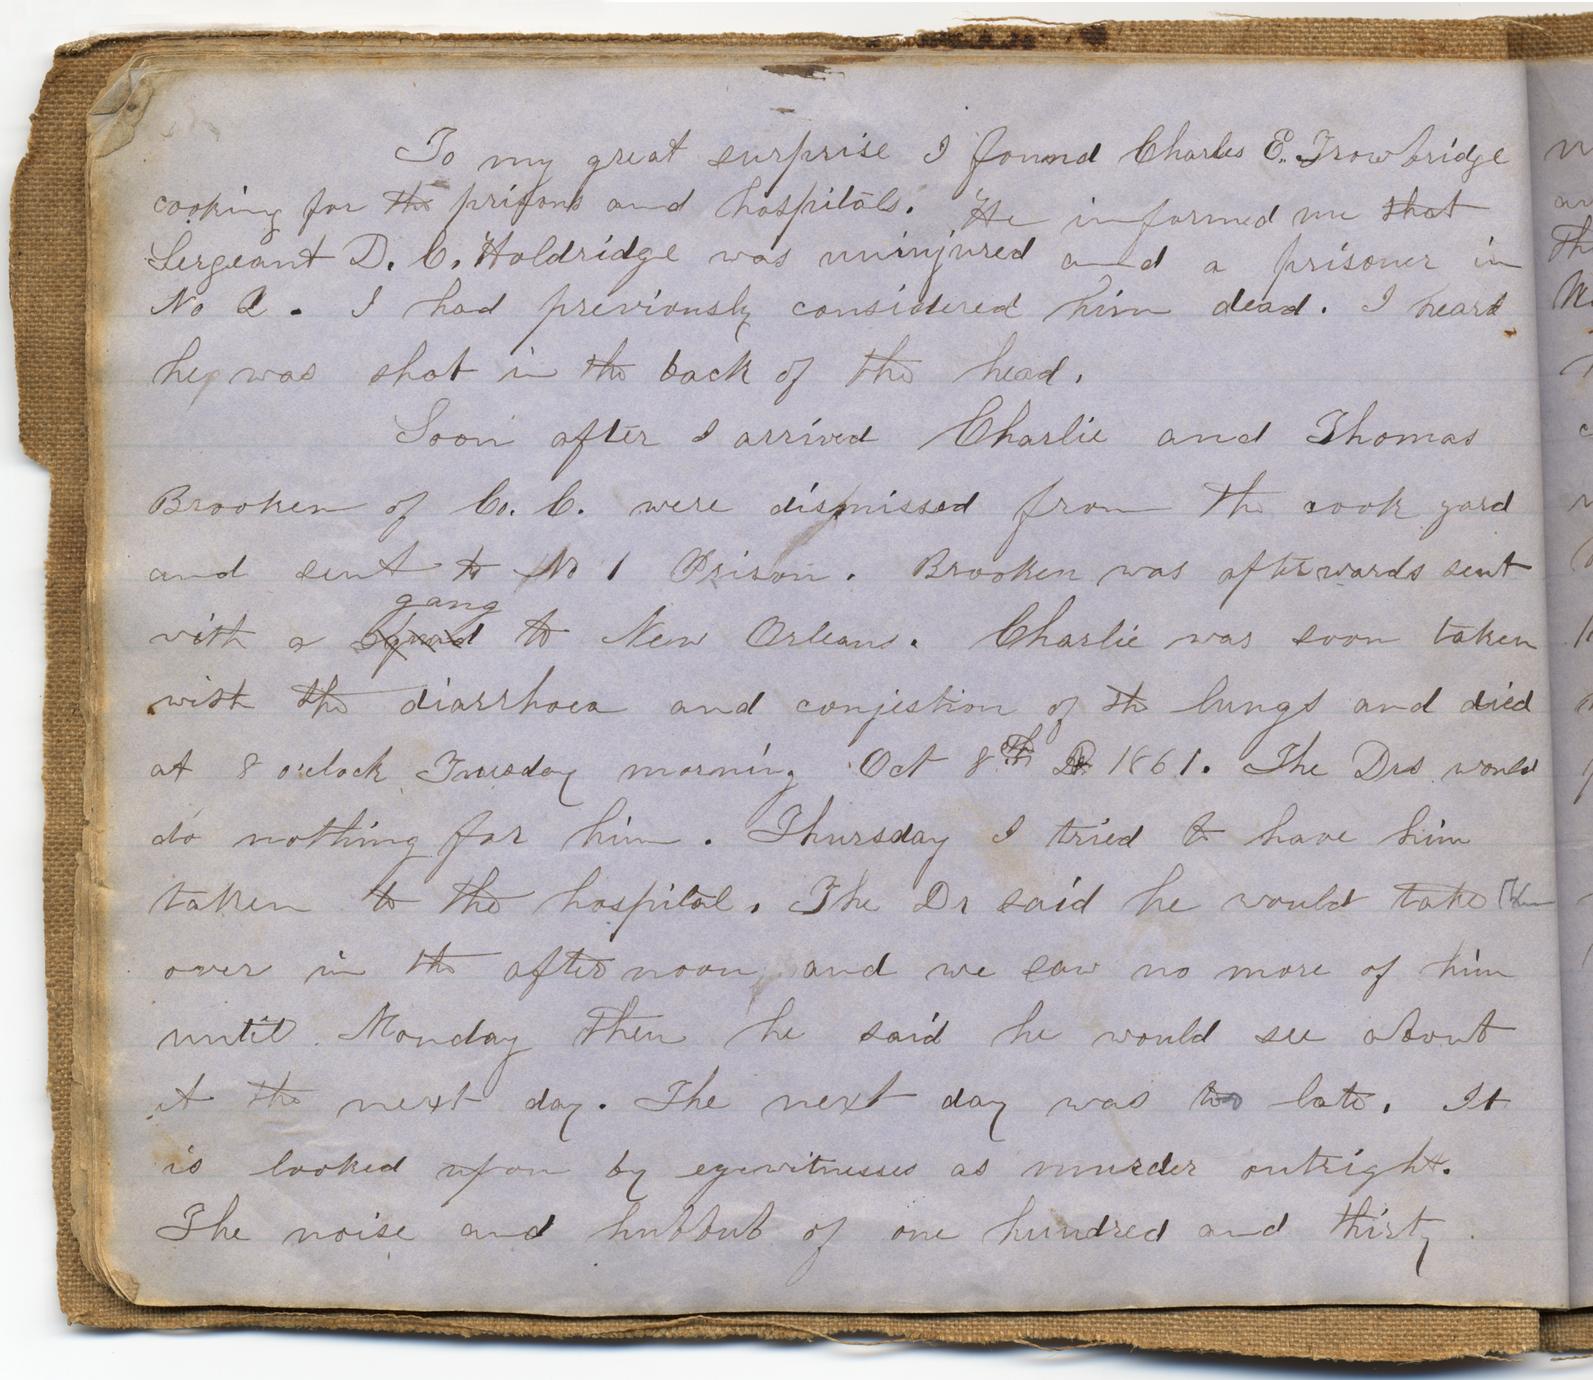 To my great surprise I found Charles E. Trowbridge
cooking for the prisons and hospitals. He informed me that
Sergeant D. C. Holdridge was uninjured and a prisoner in
No 2. I had previously considered him dead. I heard
he was shot in the back of the head.
Soon after I arrived Charlie and Thomas
Brooken of Co. C. were dismissed from the cook yard
and sent to No 1 Prison. Brooken was afterwards sent
gang
with a squad to New Orleans. Charlie was soon taken
with the diarrhoea and conjestion of the lungs and died
at 8 o'clock Tuesday morning Oct 8th 1861. The Drs would
do nothing for him. Thursday I tried to have him
taken to the hospital. The Dr said he would take him
over in the afternoon and we saw no more of him
until Monday then he said he would see about
it the next day. The next day was too late. It
is looked upon by eyewitnesses as murder outright.
The noise and hubbub of one hundred and thirty